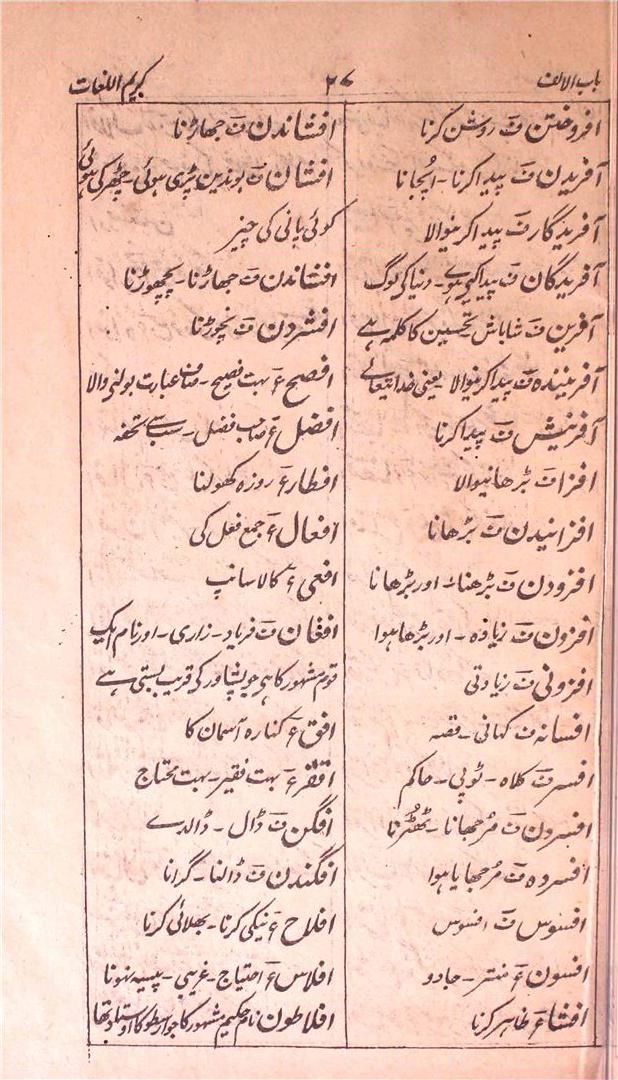 باب الالف ۲۷ کریم اللغات
افروختن ف روشن کرنا
آفریدن ف پیدا کرنا ۔ اُپجانا
آفریدگار ف پیدا کرنیوالا
آفریدگان ف پیدا کیے ہوے ۔ دنیا کی لوگ
آفرین ف شاباش تحسین کا کلمہ ہے
آفرینندہ ف پیدا کرنیوالا یعنی خدا تعالے
آفرینش ف پیدا کرنا
افزا ف بڑھانیوالا
افزانیدن ف بڑھانا
افزودن ف بڑھنا اور بڑھانا
افزون ف زیادہ ۔ اور بڑھا ہوا
افزونی ف زیادتی
افسانہ ف کہانی ۔ قصہ
افسر ف کلاہ ۔ ٹوپی ۔ حاکم
افسردن ف مرجھانا ۔ ٹھٹرنا
افسردہ ف مرجھایا ہوا
افسوس ف افسوس
افسون ع منتر ۔ جادو
افشا ع ظاہر کرنا
افشاندن ف جھاڑنا
افشان ف بوندین پڑی ہوئی ۔ چھڑکی ہوئی
کوئی پانی کی چیز
افشاندن ف جھاڑنا ۔ پچھوڑنا
افشردن ف نچوڑنا
افصح ع بہت فصیح ۔ صاف عبارت بولنی والا
افضل ع صاحب فضل ۔ سب سے تحفہ
افطار ع روزہ کھولنا
افعال ع جمع فعل کی
افعی ع کالا سانپ
افغان ف فریاد ۔ زاری ۔ اور نام ایک
قوم مشہور کا ہی جو پشاور کی قریب بستی ہے
افق ع کنارہ آسمان کا
افقر ع بہت فقیر ۔ بہت محتاج
افگن ف ڈال ۔ ڈالدے
افگندن ف ڈالنا ۔ گرانا
افلاح ع نیکی کرنا ۔ بھلائی کرنا
افلاس ع احتیاج ۔ غریبی ۔ پیسہ نہونا
افلاطون نام حکیم مشہور کا جو ارسطو کا اوستاد تھا